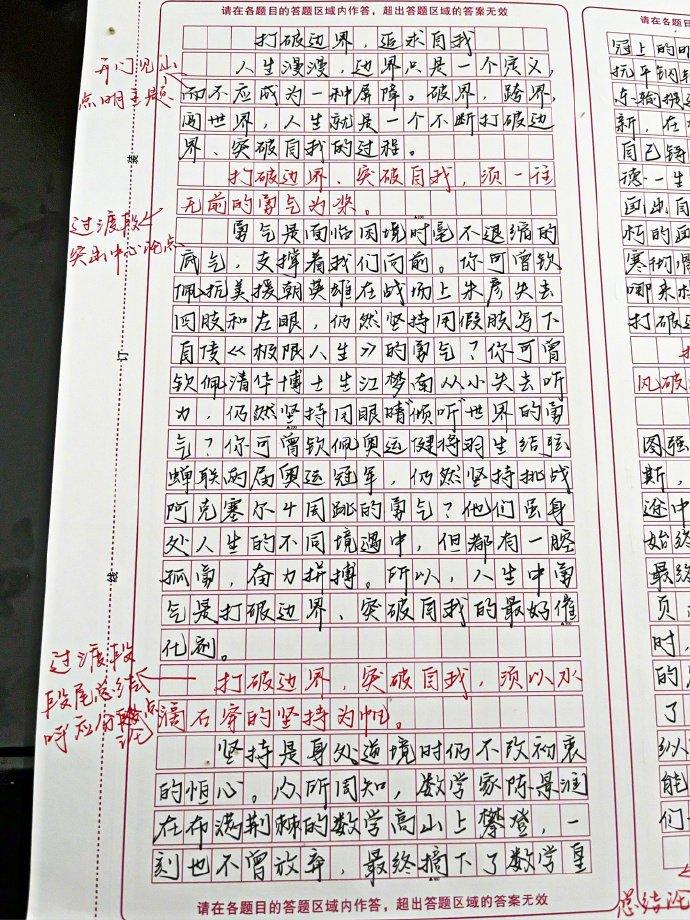 请在各题目的答题区域内作答，超出答题区域的答案无效
打破边界，追求自我
人生漫漫，边界只是一个定义，
而不应成为一种屏障。破界，跨界，
闯世界，人生就是一个不断打破边
界、突破自我的过程。
打破边界、突破自我，须一往
无前的勇气为桨。
勇气是面临困境时毫不退缩的
底气，支撑着我们向前。你可曾钦
佩抗美援朝英雄在战场上朱彦失去
四肢和左眼，仍然坚持用假肢写下
自传《极限人生》的勇气？你可曾
钦佩清华博士生江梦南从小失去听
力，仍然坚持用眼睛"倾听"世界的勇
气？你可曾钦佩奥运健将羽生结弦
蝉联两届奥运冠军，仍然坚持挑战
阿克塞尔4周跳的勇气？他们虽身
处人生的不同境遇中，但都有一腔
孤勇，奋力拼搏。所以，人生中勇
气是打破边界、突破自我的最好催
化剂。
打破边界，突破自我，须以水
滴石穿的坚持为帆。
坚持是身处逆境时仍不改初衷
的恒心。众所周知，数学家陈景润
在布满荆棘的数学高山上攀登，一
刻也不曾放弃，最终摘下了数学皇
请在各题目的答题区域内作答，超出答题区域的答案无效
开门见山
点明主题
过渡段
突出中心论点
过渡段
段尾总结
呼应分论点
装
订
线
请在各题目
冠上的明
抗平
东输
新，在
自己铸
德一生
画出自
朽的画
寒彻骨
哪来
打破边
风破
图强
斯，
途中
始终
最终
页
时，
的
了
纵
能
们
请在各题目
总结论